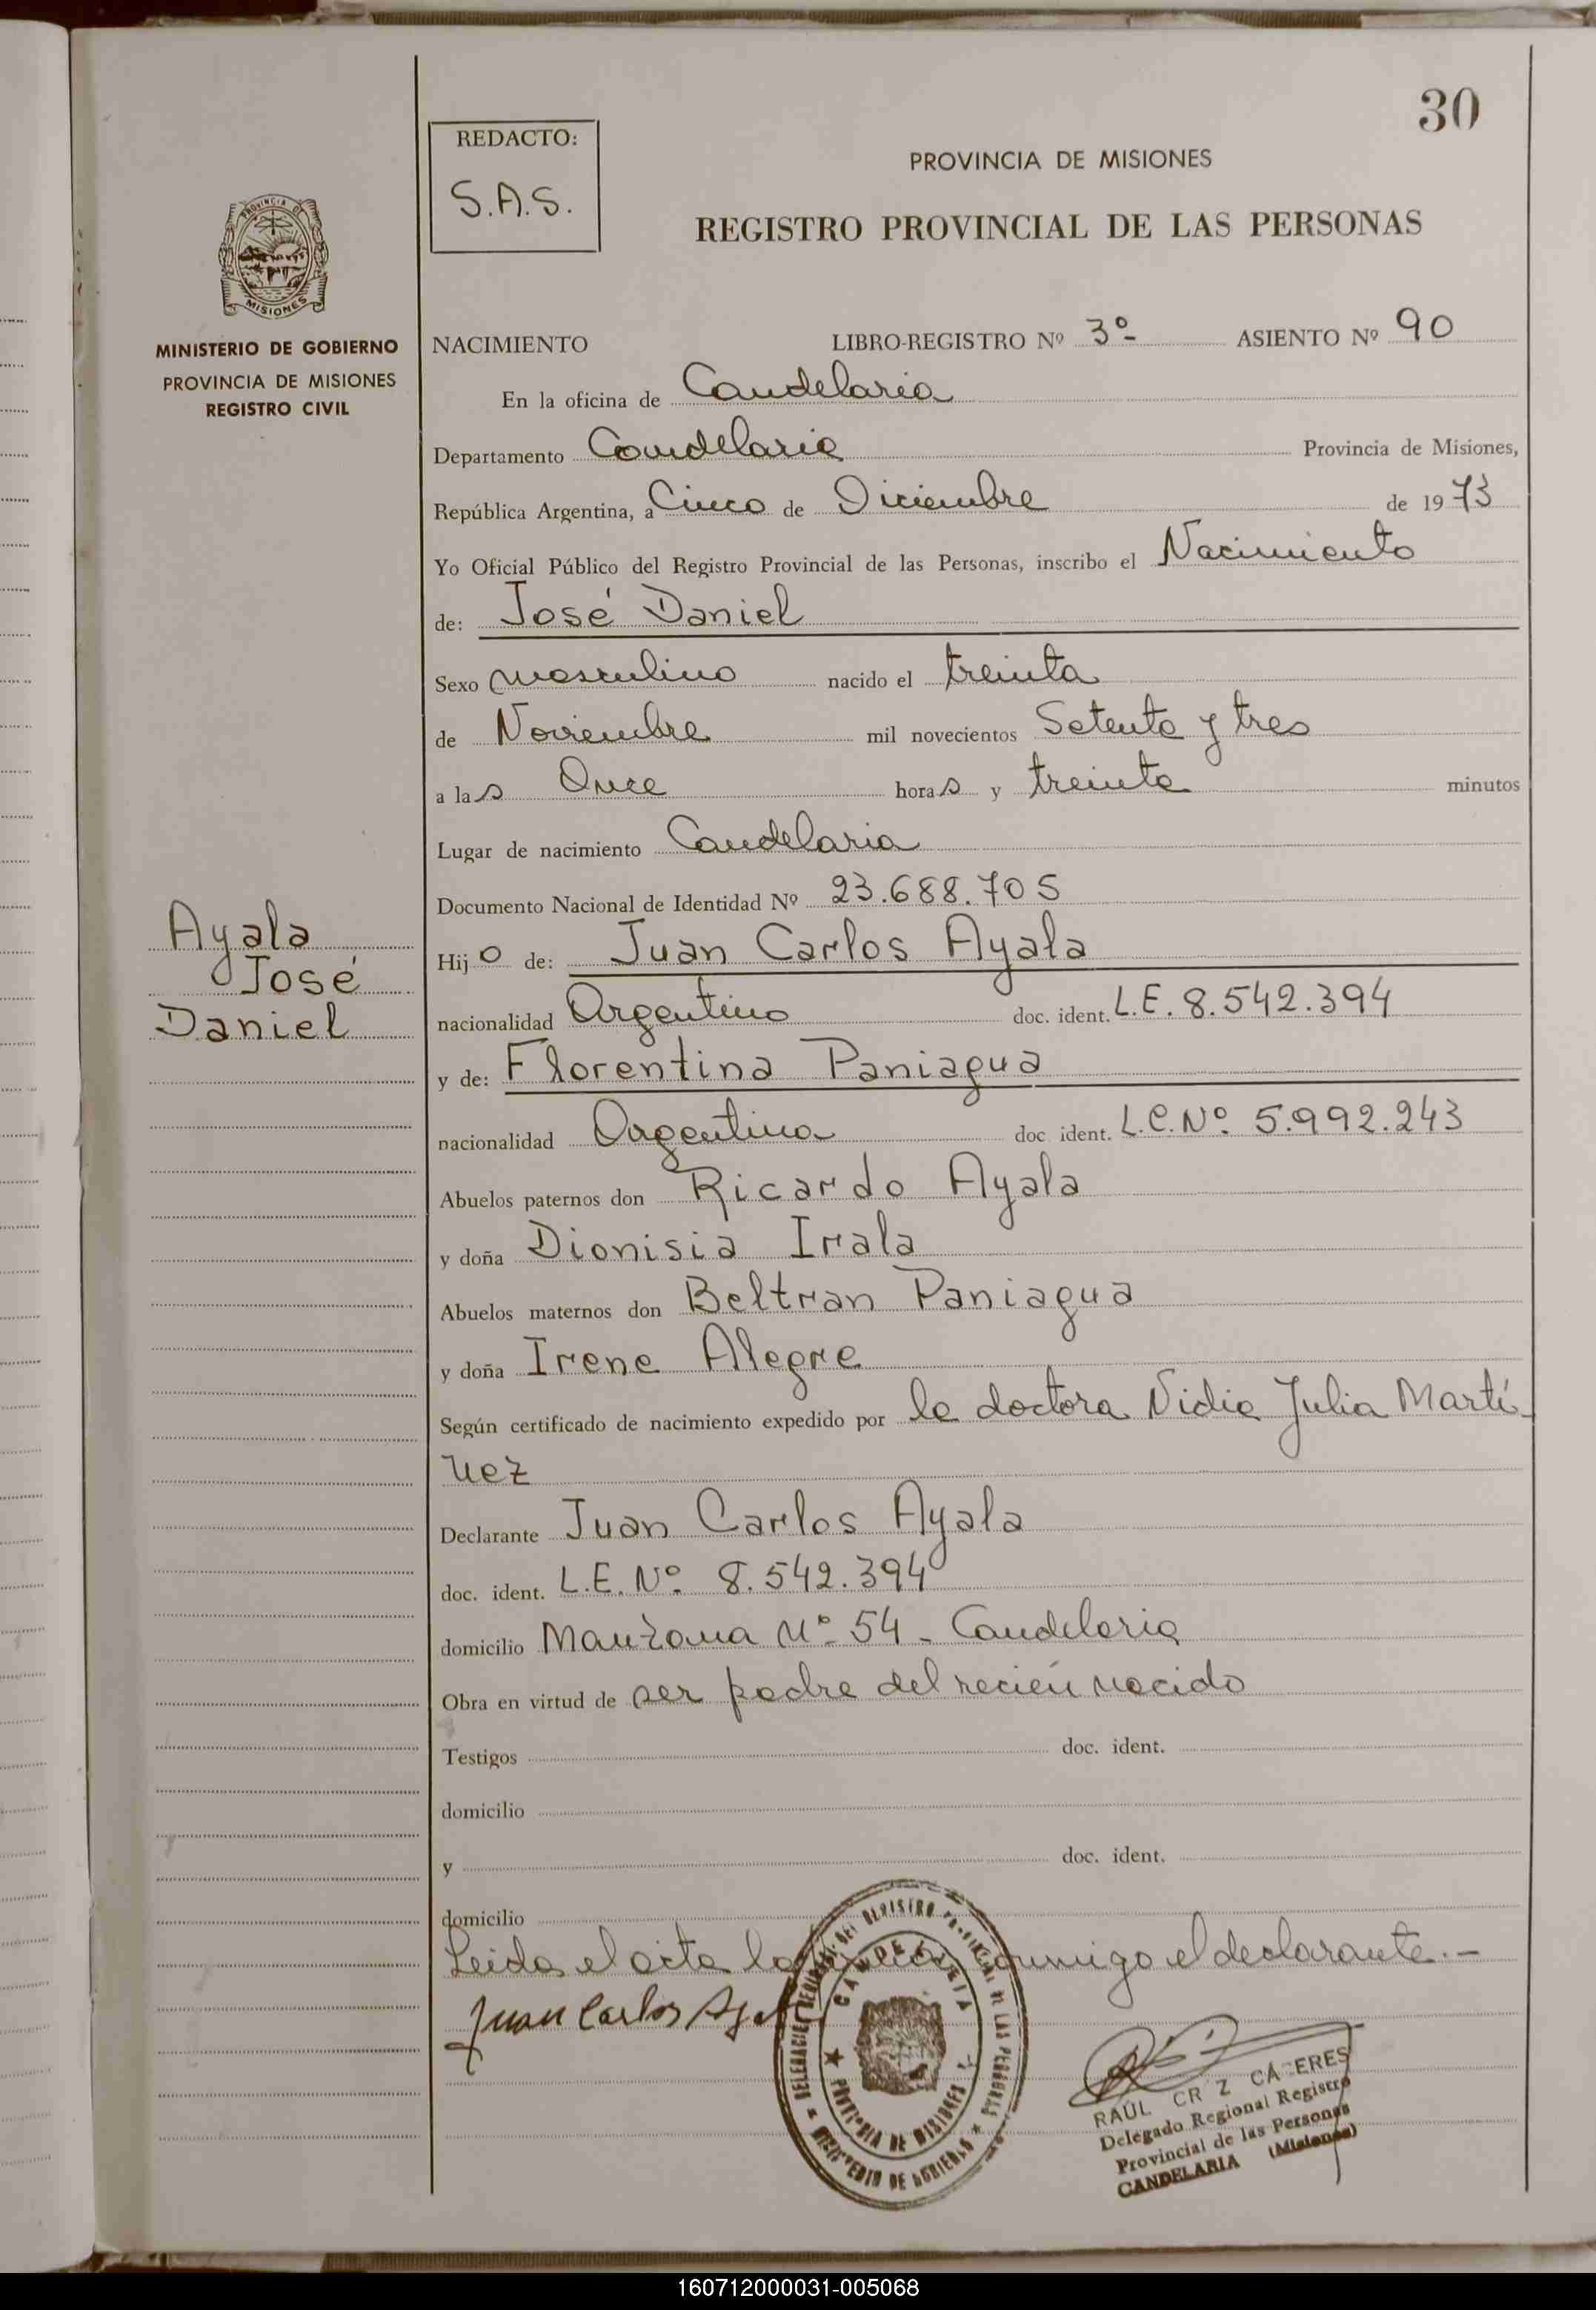 30
REDACTO:
S.A.S.
PROVINCIA DE MISIONES
REGISTRO PROVINCIAL DE LAS PERSONAS
PROVINCIA DE
MISIONES
MINISTERIO DE GOBIERNO
PROVINCIA DE MISIONES
REGISTRO CIVIL
NACIMIENTO LIBRO-REGISTRO Nº 3º ASIENTO Nº 90
En la oficina de Candelaria
Departamento Candelaria Provincia de Misiones,
República Argentina, a Cinco de Diciembre de 1973
Yo Oficial Público del Registro Provincial de las Personas, inscribo el Nacimiento
de: José Daniel
Sexo masculino nacido el treinta
de Noviembre mil novecientos Setenta y tres
a las Once horas y treinta minutos
Lugar de nacimiento Candelaria
Documento Nacional de Identidad Nº 23.688.705
Ayala
José
Daniel
Hijo de: Juan Carlos Ayala
nacionalidad Argentino doc. ident. L.E. 8.542.394
y de: Florentina Paniagua
nacionalidad Argentina doc. ident. L.C. Nº 5.992.243
Abuelos paternos don Ricardo Ayala
y doña Dionisia Irala
Abuelos maternos don Beltran Paniagua
y doña Irene Alegre
Según certificado de nacimiento expedido por la doctora Nidia Julia Martí-
nez
Declarante Juan Carlos Ayala
doc. ident. L.E. Nº 8.542.394
domicilio Manzana Nº 54 - Candelaria
Obra en virtud de ser padre del recién nacido
Testigos doc. ident.
domicilio
y doc. ident.
domicilio
Leida el acta la conmigo el declarante.-
Juan Carlos
CANDELARIA
PROVINCIA DE MISIONES
MINISTERIO DE GOBIERNO
RAÚL CR Z CACERES
Delegado Regional Registro
Provincial de las Personas
CANDELARIA (Misiones)
160712000031-005068